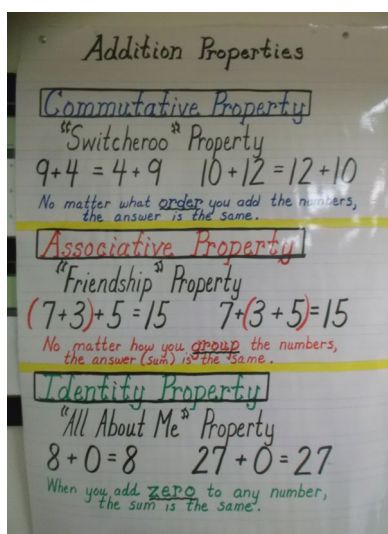 Addition Properties
Commutative Property
"Switcheroo" Property
9+4 = 4+9 10+12=12+10
No matter what order you add the numbers,
the answer is the same.
Associative Property
"Friendship" Property
(7+3)+5=15 7+(3+5)=15
No matter how you group the numbers,
the answer (sum) is the same.
Identity Property
"All About Me" Property
8+0=8 27+0=27
When you add zero to any number,
the sum is the same.